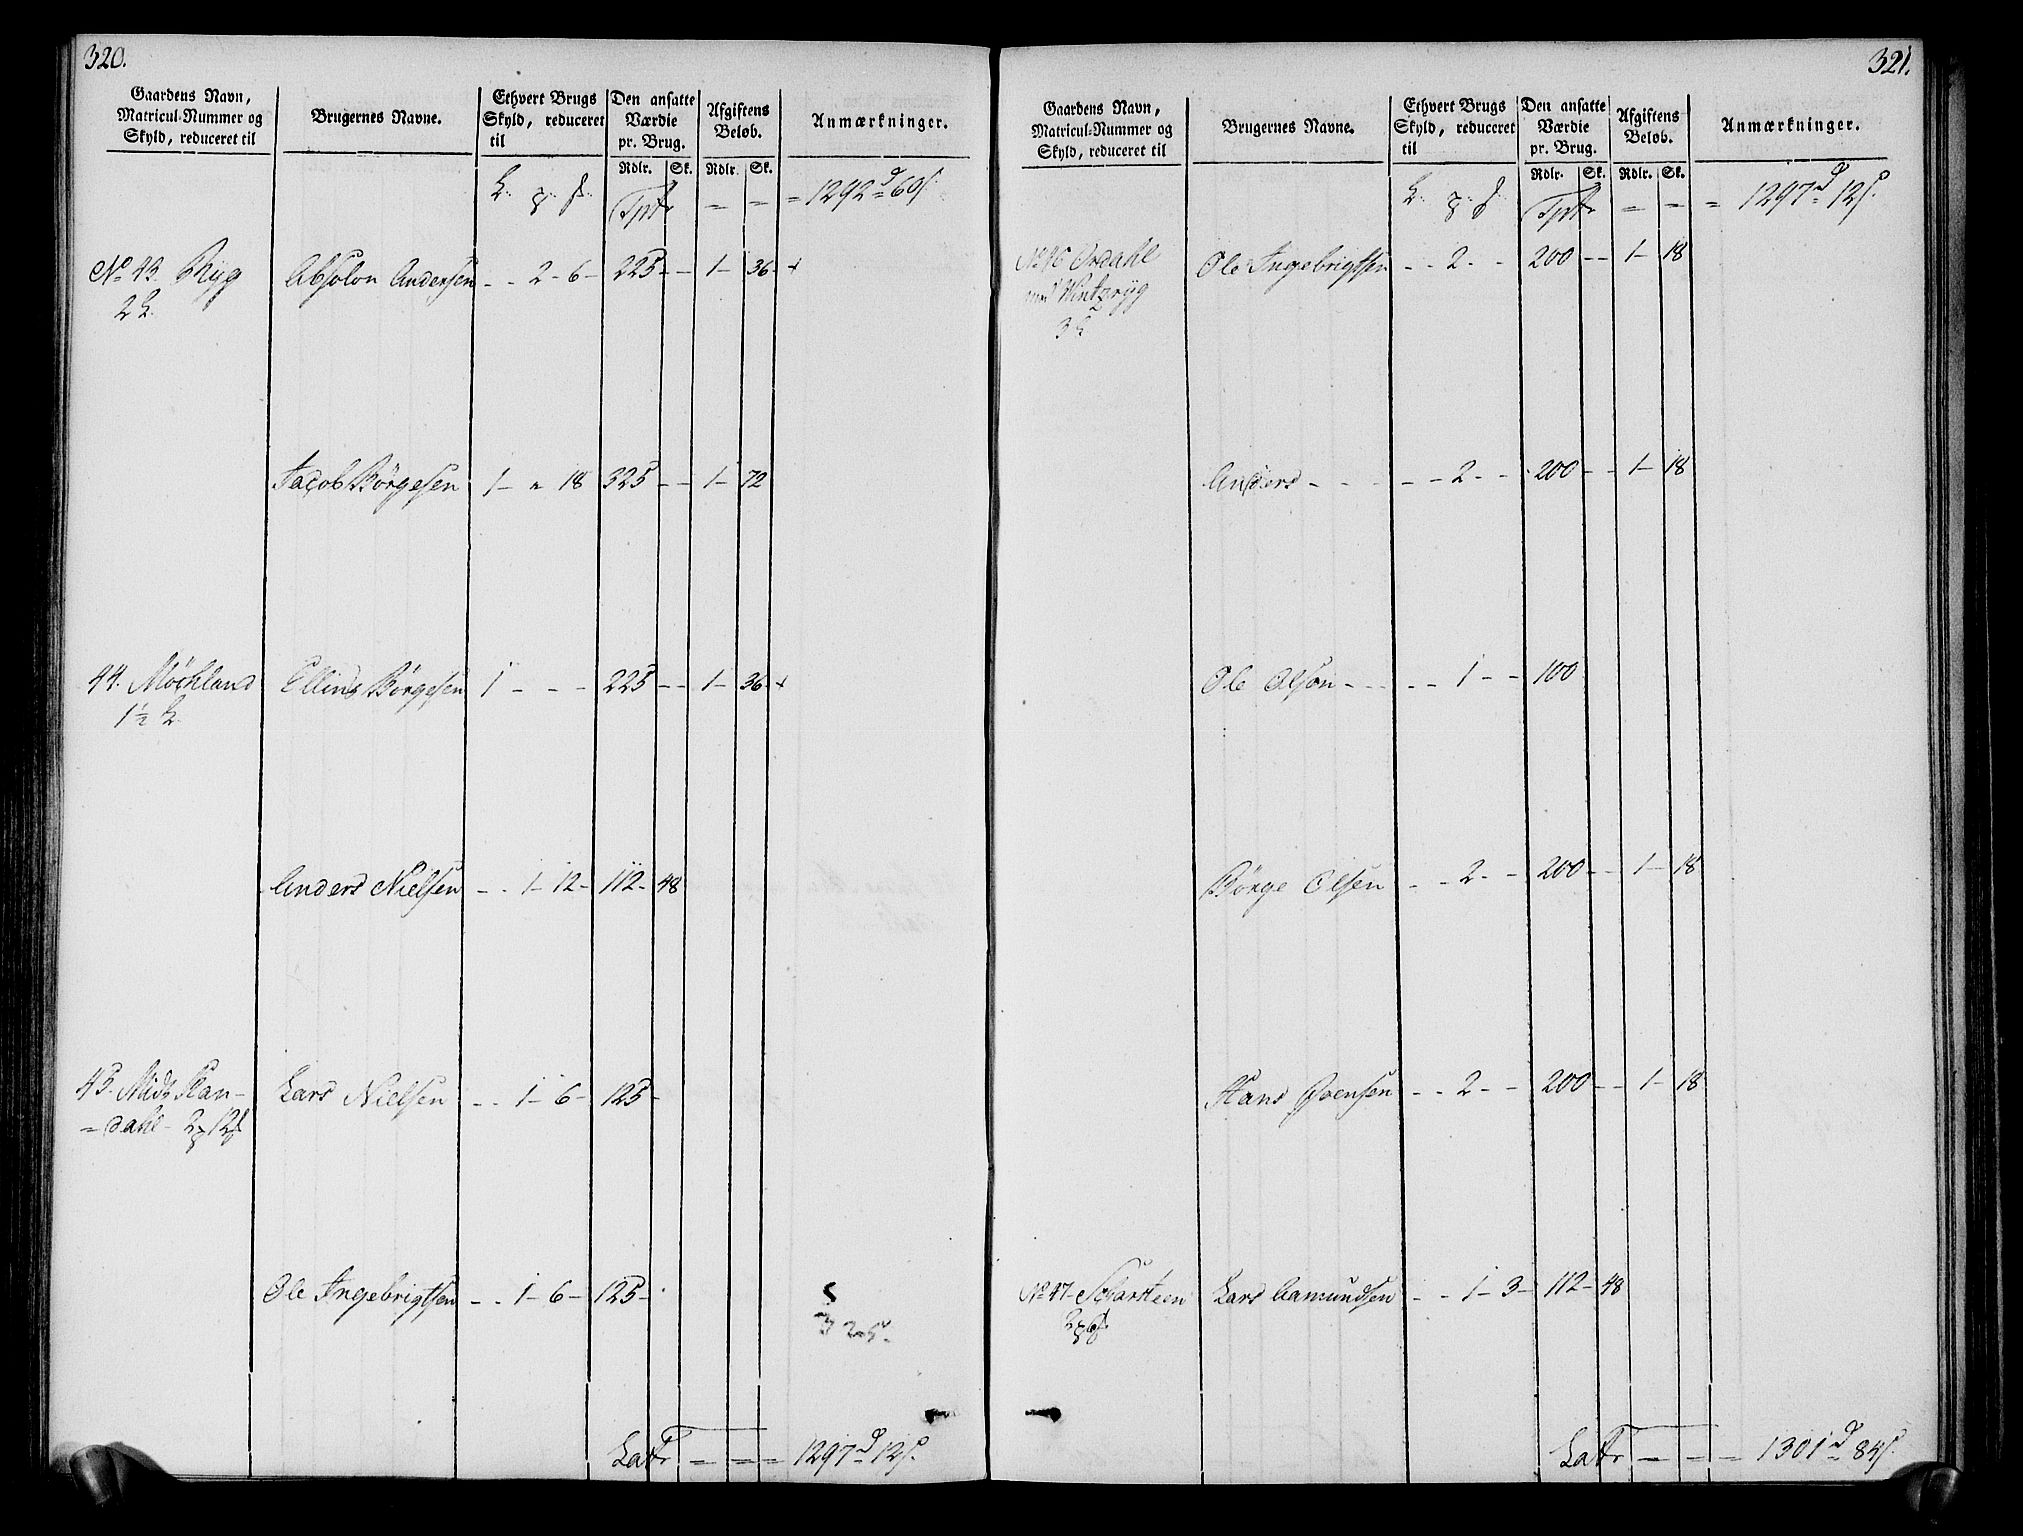 320.
Gaardens Navn, Matricul-Nummer og Skyld, reduceret til
Brugernes Navne.
Ethvert Brugs Skyld, reduceret til
Den ansatte Værdie pr. Brug.
Afgiftens Beløb.
Anmærkninger.
Rdlr. Sk. Rdlr. Sk.
Tpt = = = 1292 d 60 s.
No 43. Ryg Absolon Andersen - - 2 - 6 - 225 - - 1 - 36 - +
Jacob Børgesen 1 - " 18 325 - - 1 - 72
44. Møchland Elling Børgesen 1 - - - 225 - - 1 - 36 - +
1½
Anders Nielsen - - 1 - 12 - 112 - 48
45. Mids Ran- Lars Nielsen - - 1 - 6 - 125 -
= dahl - 2 12
Ole Ingebrigtsen - - 1 - 6 - 125 -
5
325.
Latr = = = 1297 d 12 s.
321.
Gaardens Navn, Matricul-Nummer og Skyld, reduceret til
Brugernes Navne.
Ethvert Brugs Skyld, reduceret til
Den ansatte Værdie pr. Brug.
Afgiftens Beløb.
Anmærkninger.
Rdlr. Sk. Rdlr. Sk.
Tpt = = = 1297 d 12 s.
No 46 Ole Ingebrigtsen - - 2 - - 200 - - 1 - 18
Anders - - - - - 2 - - 200 - - 1 - 18
Ole Olsen - - - - - 1 - - 100
Børge Olsen - - 2 - - 200 - - 1 - 18
Hans Evensen - - 2 - - 200 - - 1 - 18
No 47 - Scharsteen Lars Aamundsen - - 1 - 3 - 112 - 48
Latr = = = 1301 d 84 s.